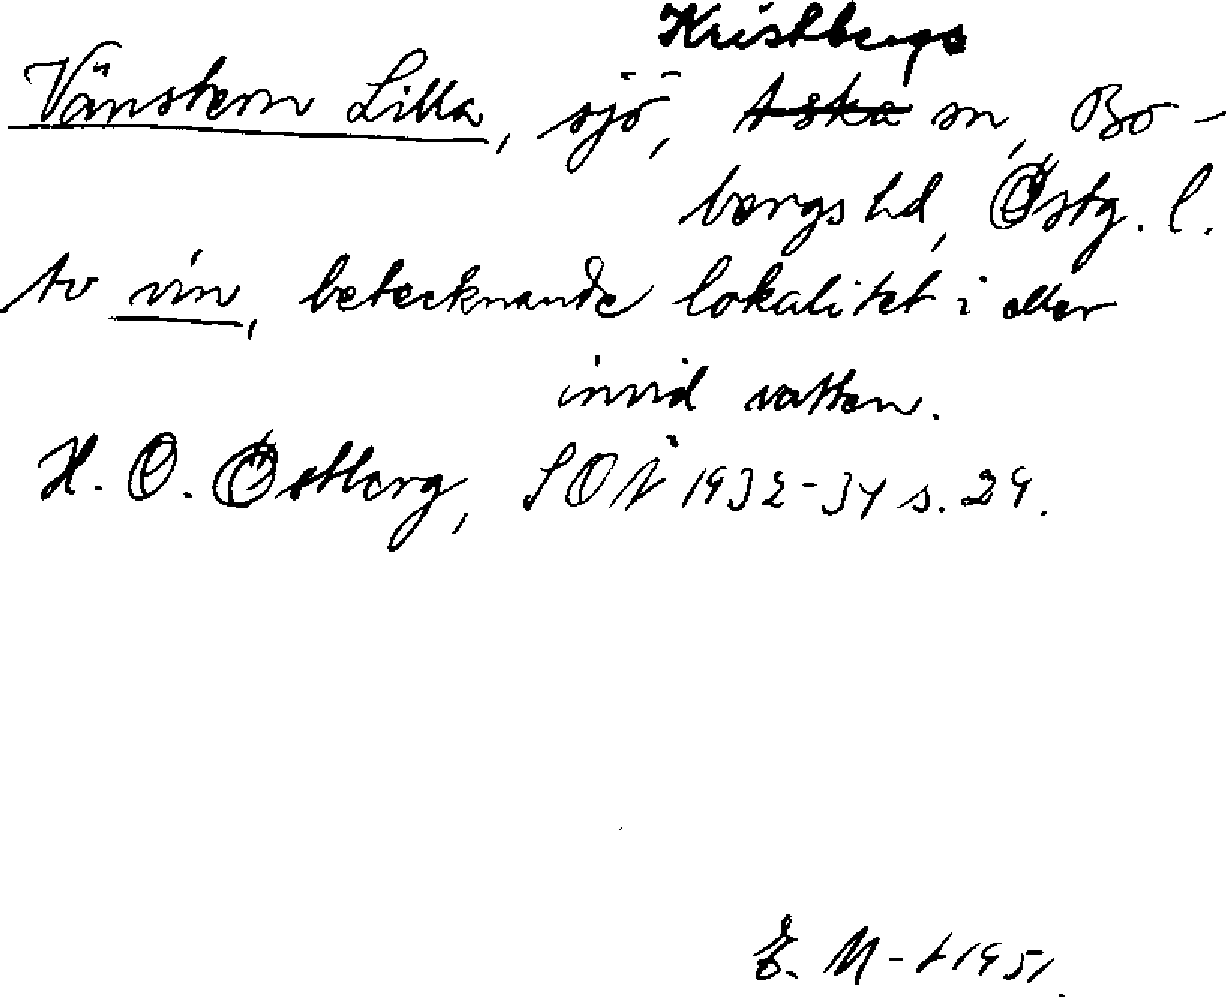 Kristbergs
Vänstern Lilla, sjö, Aska sn, Bo-
bergs hd, Östg. l.
to vin, betecknande lokalitet i eller
invid vatten.
H. O. Östberg, SOÅ 1932-34 s. 29.
E. M-t 1951.